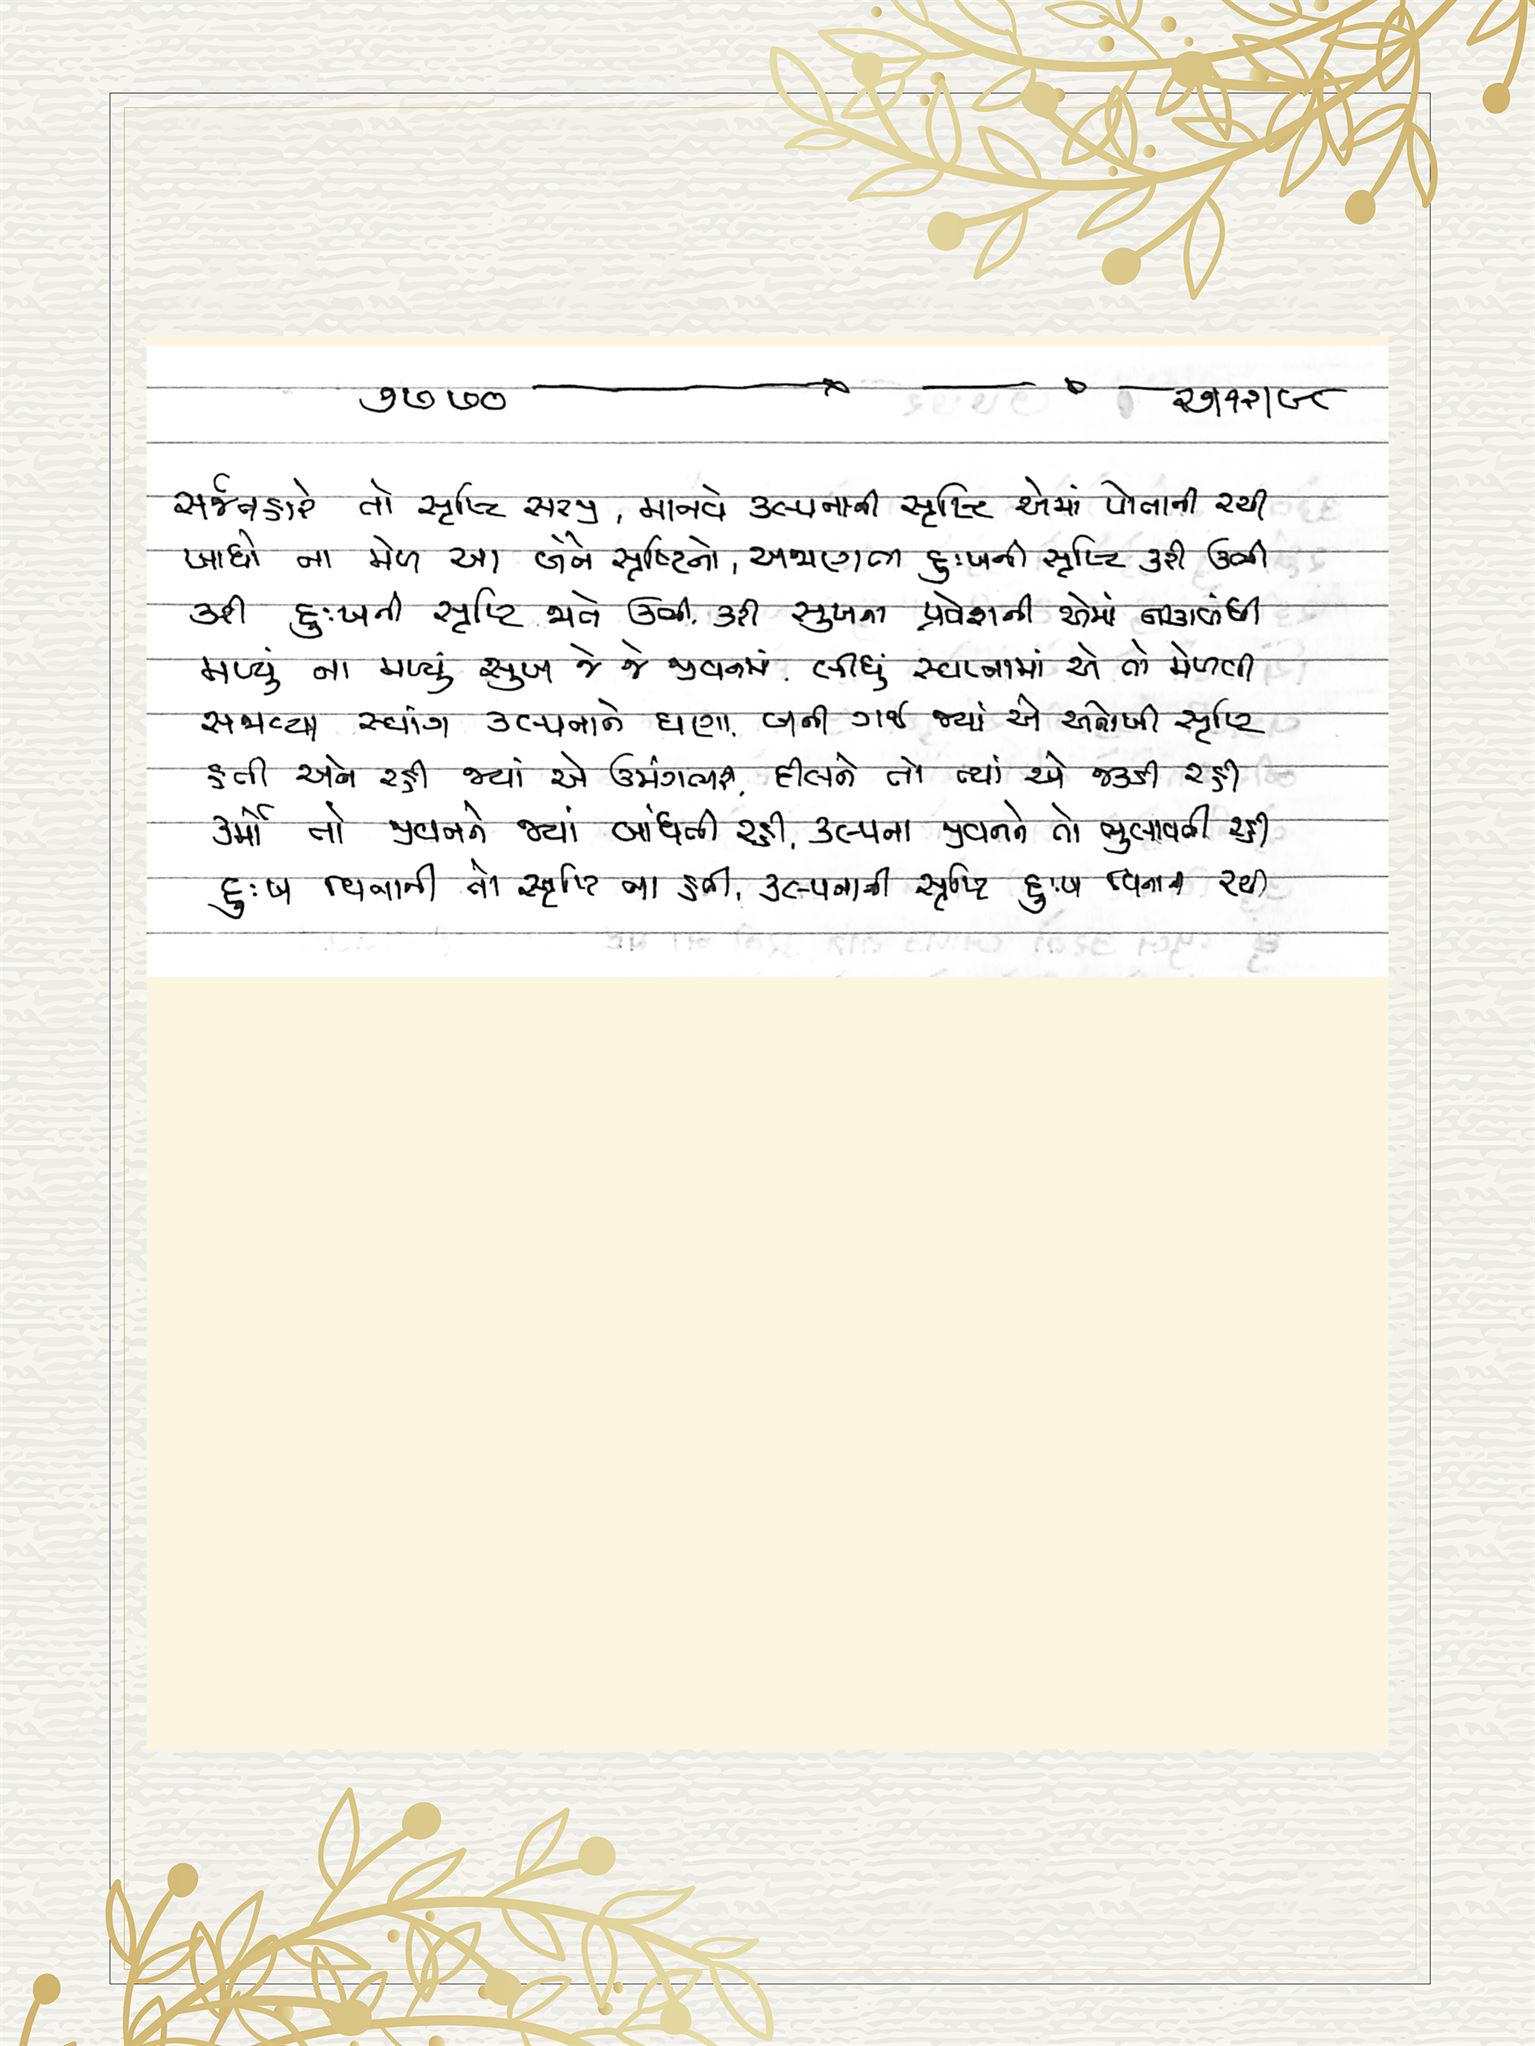 ૭૭૭૦ ૨૭/૧૨/૯૮
સર્જનહારે તો સૃષ્ટિ સરજી, માનવે કલ્પનાની સૃષ્ટિ એમાં પોતાની રચી
ખાધો ના મેળ આ બંને સૃષ્ટિનો, અજાણતા દુઃખની સૃષ્ટિ કરી ઉભી
કરી દુઃખની સૃષ્ટિ જાતે ઉભી. કરી સુખના પ્રવેશની એમાં નાકાબંધી
મળ્યું ના મળ્યું સુખ જે જે જીવનમાં. લીધું સ્વપ્નામાં એ તો મેળવી
સજાવ્યા સ્વાંગ કલ્પનાને ઘણા. બની ગઈ જ્યાં એ અનોખી સૃષ્ટિ
હતી અને રહી જ્યાં એ ઉમંગભરી, દીલને તો ત્યાં એ જકડી રહી
કર્મો તો જીવનને જ્યાં બાંધતી રહી, કલ્પના જીવનને તો ભુલાવતી રહી
દુઃખ વિનાની તો સૃષ્ટિ ના હતી, કલ્પનાની સૃષ્ટિ દુઃખ વિનાની રચી